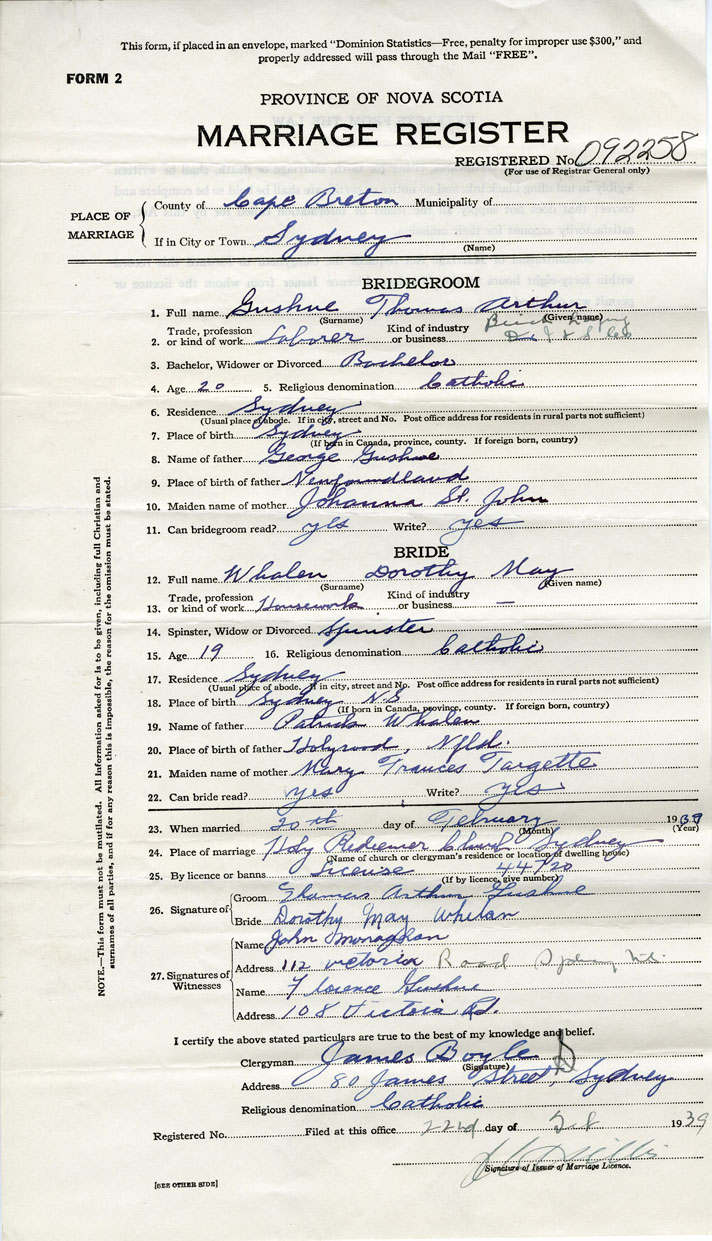 This form, if placed in an envelope, marked "Dominion Statistics—Free, penalty for improper use $300," and
properly addressed will pass through the Mail "FREE".
FORM 2
PROVINCE OF NOVA SCOTIA
MARRIAGE REGISTER
REGISTERED No. 092258
(For use of Registrar General only)
PLACE OF MARRIAGE
County of Cape Breton Municipality of
If in City or Town Sydney
(Name)
BRIDEGROOM
1. Full name Gushue Thomas Arthur
(Surname) (Given name)
2. Trade, profession or kind of work Laborer Kind of industry or business
3. Bachelor, Widower or Divorced Bachelor
4. Age 20 5. Religious denomination Catholic
6. Residence Sydney
(Usual place of abode. If in city, street and No. Post office address for residents in rural parts not sufficient)
7. Place of birth Sydney
(If born in Canada, province, county. If foreign born, country)
8. Name of father George Gushue
9. Place of birth of father Newfoundland
10. Maiden name of mother Johanna St. John
11. Can bridegroom read? yes Write? yes
BRIDE
12. Full name Whalen Dorothy May
(Surname) (Given name)
13. Trade, profession or kind of work Housework Kind of industry or business —
14. Spinster, Widow or Divorced Spinster
15. Age 19 16. Religious denomination Catholic
17. Residence Sydney
(Usual place of abode. If in city, street and No. Post office address for residents in rural parts not sufficient)
18. Place of birth Sydney N.S
(If born in Canada, province, county. If foreign born, country)
19. Name of father Patrick Whalen
20. Place of birth of father Holyrood, Nfld.
21. Maiden name of mother Mary Frances Targette
22. Can bride read? yes Write? yes
23. When married 20th day of February 1939
(Month) (Year)
24. Place of marriage Holy Redeemer Church Sydney
(Name of church or clergyman's residence or location of dwelling house)
25. By licence or banns License 44720
(If by licence, give number)
26. Signature of
Groom Thomas Arthur Gushue
Bride Dorothy May Whelan
27. Signatures of Witnesses
Name John Monaghan
Address 112 Victoria Road Sydney N.S.
Name Florence Gushue
Address 108 Victoria Rd.
I certify the above stated particulars are true to the best of my knowledge and belief.
Clergyman James Boyle
(Signature)
Address 80 James Street, Sydney
Religious denomination Catholic
Registered No. Filed at this office 22nd day of Feb 1939
Signature of Issuer of Marriage Licence.
[SEE OTHER SIDE]
NOTE.—This form must not be mutilated. All Information asked for is to be given, including full Christian and
surnames of all parties, and if for any reason this is impossible, the reason for the omission must be stated.